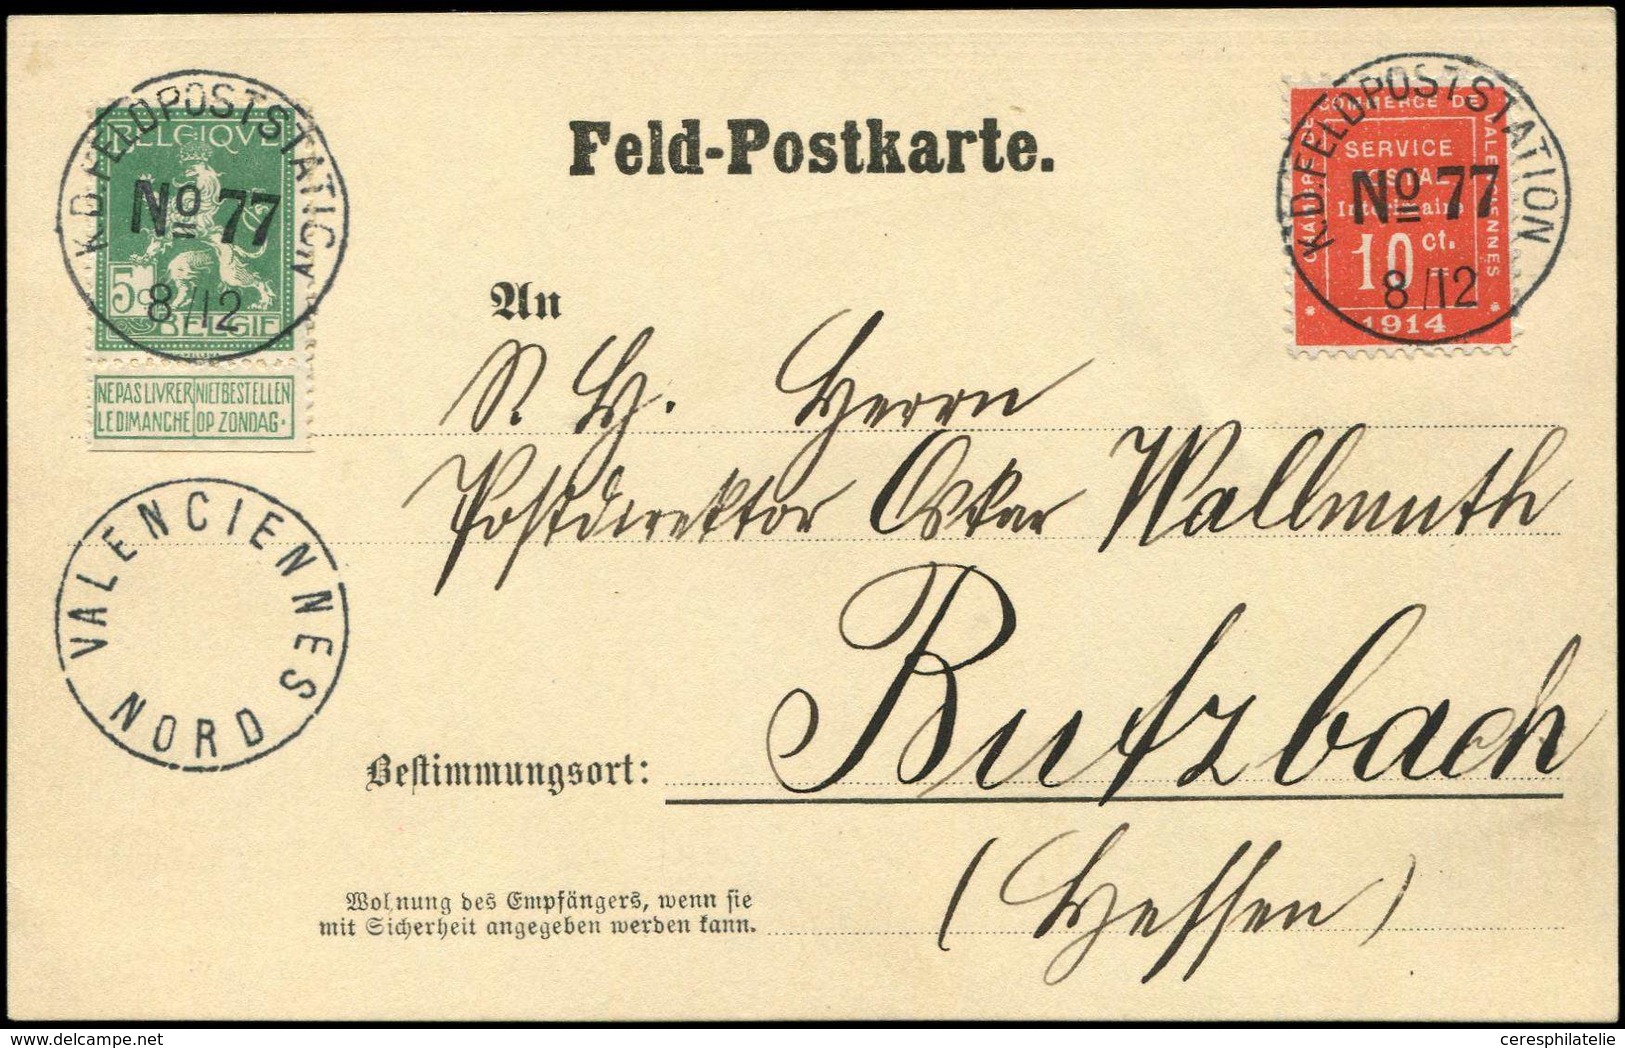 K.D. FELDPOSTSTATION
No 77
8/12
BELGIQVE
5c
BELGIE
NE PAS LIVRER LE DIMANCHE
NIET BESTELLEN OP ZONDAG.
Feld-Postkarte.
K.D. FELDPOSTSTATION
No 77
8/12
CHAMBRE DE COMMERCE DE VALENCIENNES
SERVICE
POSTAL
Intérimaire
10 ct.
* 1914 *
An
S. H. Herrn
Postdirektor Oskar Wallmuth
VALENCIENNES
NORD
Bestimmungsort: Butzbach
(Hessen)
Wohnung des Empfängers, wenn sie
mit Sicherheit angegeben werden kann.
ceresphilatelie